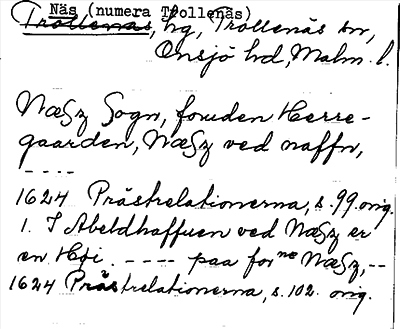 Näs (numera Trollenäs)
Trollenäs, hg, Trollenäs sn,
Onsjö hd, Malm. l.
Næsz Sogn, foruden Herre-
gaarden, Næsz ved naffn,
----
1624 Prästrelationerna, s. 99. orig.
1. I Abeldhaffuen ved Næsz er
en Høi. ---- paa forne Næsz, --
1624 Prästrelationerna, s. 102. orig.